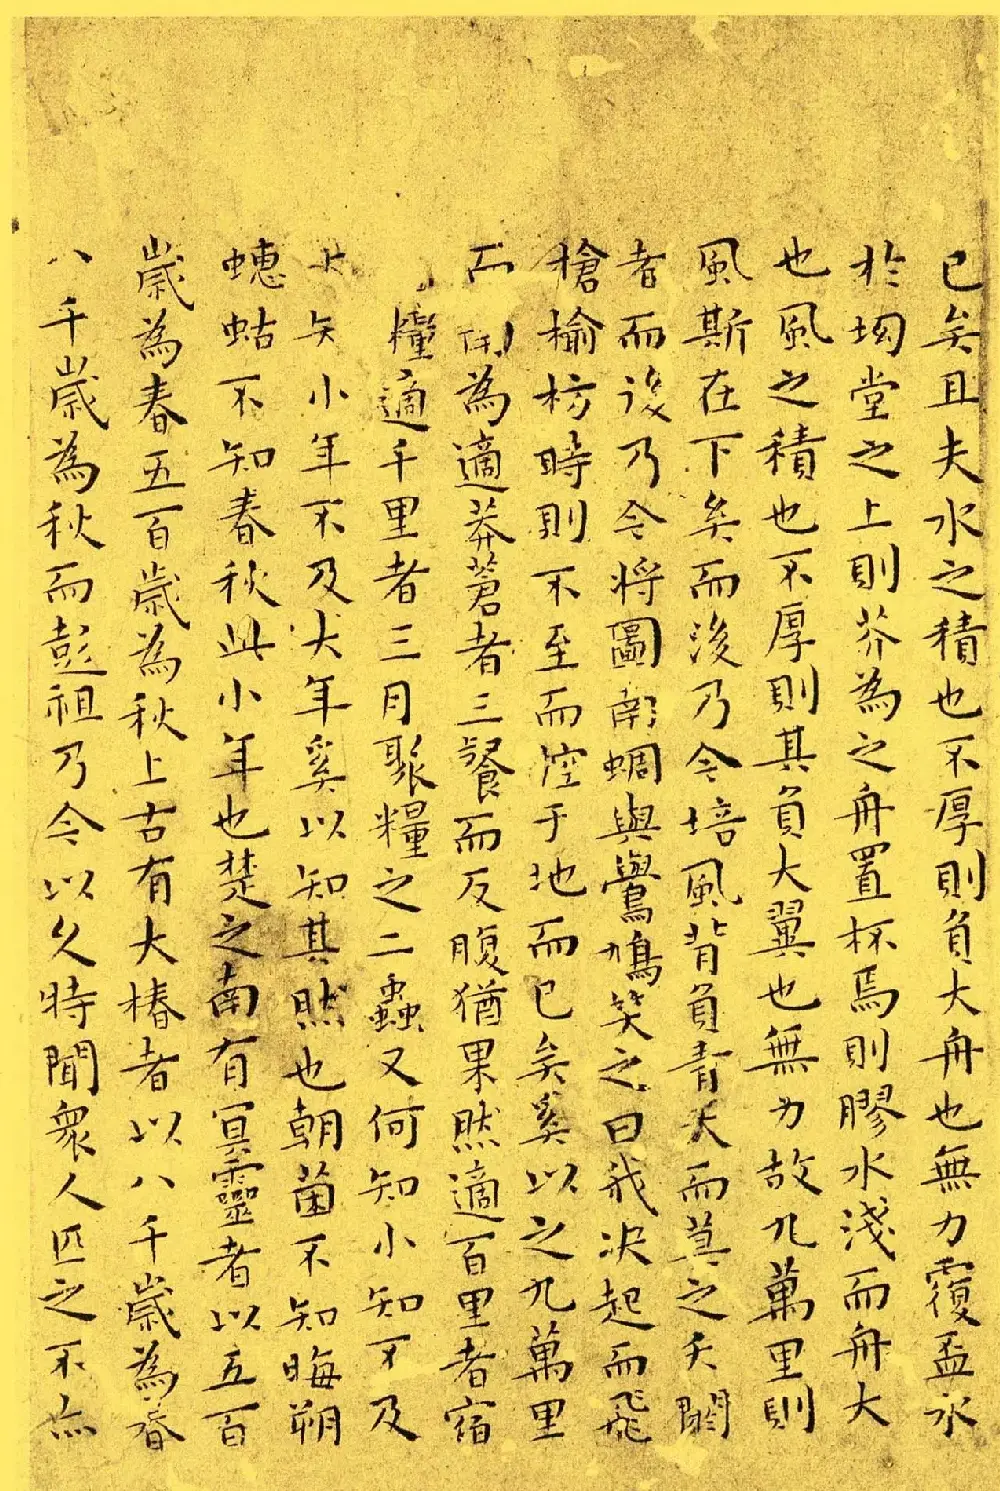 已矣且夫水之積也不厚則負大舟也無力覆盃水
於坳堂之上則芥為之舟置杯焉則膠水淺而舟大
也風之積也不厚則其負大翼也無力故九萬里則
風斯在下矣而後乃今培風背負青天而莫之夭閼
者而後乃今將圖南蜩與鷽鳩笑之曰我決起而飛
槍榆枋時則不至而控于地而已矣奚以之九萬里
而為適莽蒼者三飡而反腹猶果然適百里者宿
糧適千里者三月聚糧之二蟲又何知小知不及
矢小年不及大年奚以知其然也朝菌不知晦朔
蟪蛄不知春秋此小年也楚之南有冥靈者以五百
歲為春五百歲為秋上古有大椿者以八千歲為春
八千歲為秋而彭祖乃今以久特聞衆人匹之不亦